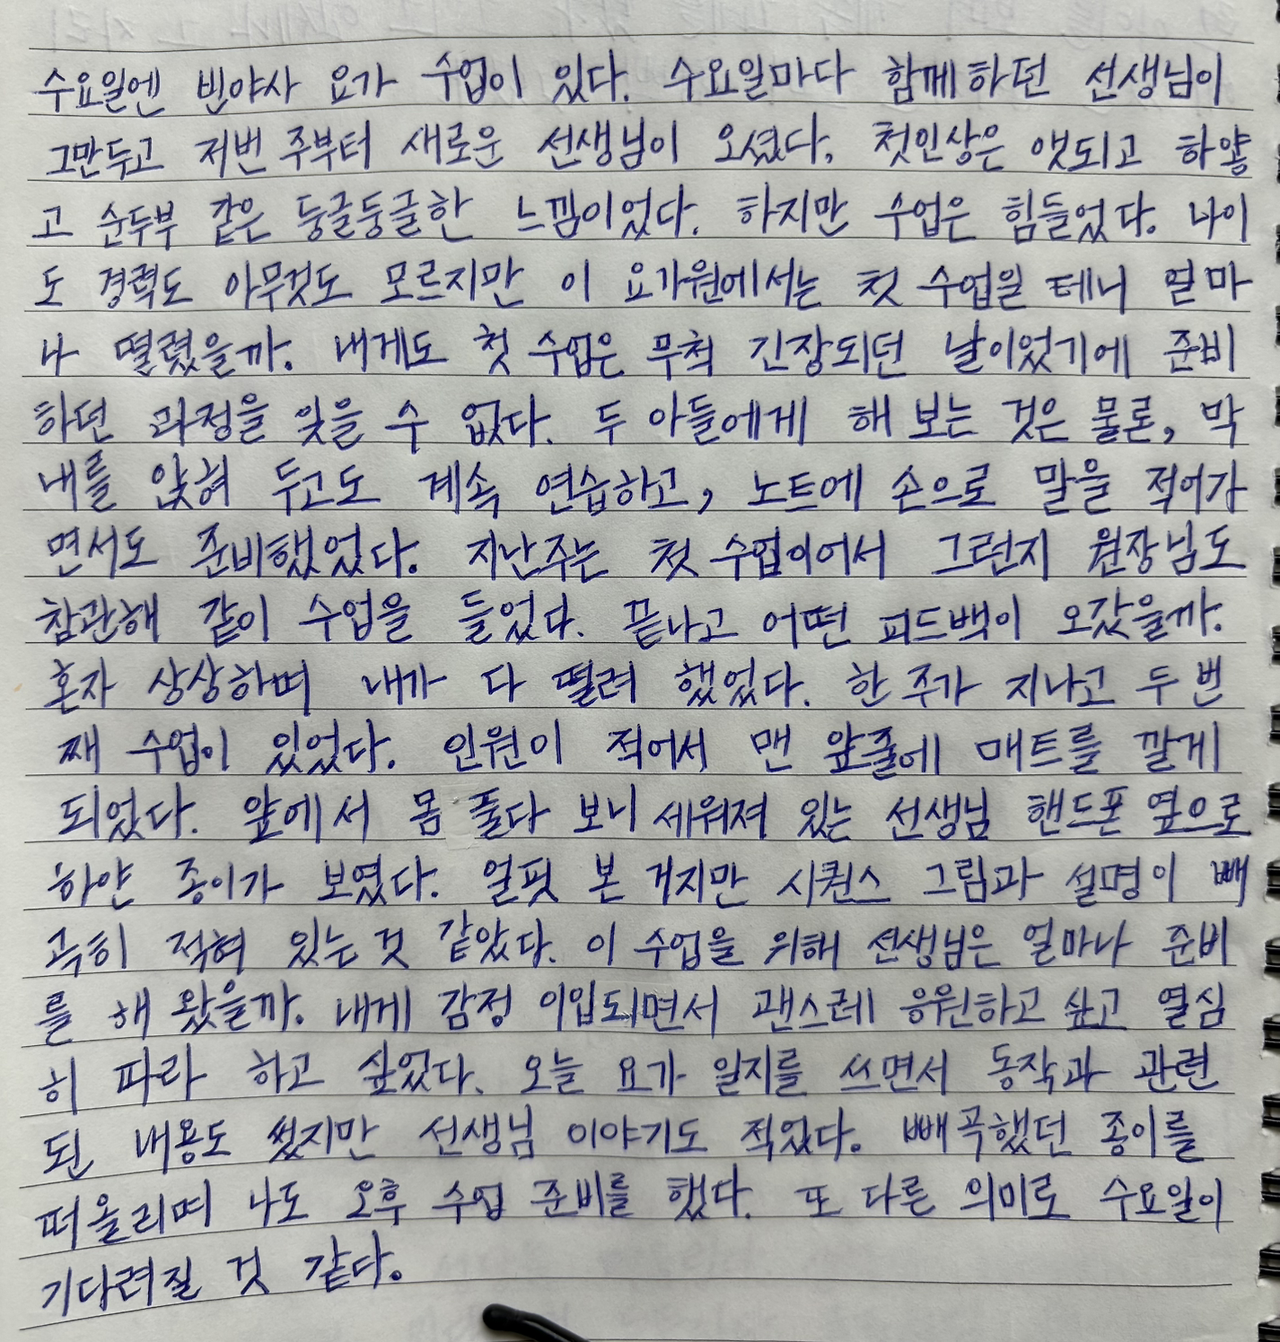 수요일엔 빈야사 요가 수업이 있다. 수요일마다 함께하던 선생님이
그만두고 저번 주부터 새로운 선생님이 오셨다. 첫인상은 앳되고 하얗
고 순두부 같은 둥글둥글한 느낌이었다. 하지만 수업은 힘들었다. 나이
도 경력도 아무것도 모르지만 이 요가원에서는 첫 수업일 테니 얼마
나 떨렸을까. 내게도 첫 수업은 무척 긴장되던 날이었기에 준비
하던 과정을 잊을 수 없다. 두 아들에게 해 보는 것은 물론, 막
내를 앉혀 두고도 계속 연습하고, 노트에 손으로 말을 적어가
면서도 준비했었다. 지난주는 첫 수업이어서 그런지 원장님도
참관해 같이 수업을 들었다. 끝나고 어떤 피드백이 오갔을까.
혼자 상상하며 내가 다 떨려 했었다. 한 주가 지나고 두 번
째 수업이 있었다. 인원이 적어서 맨 앞줄에 매트를 깔게
되었다. 앞에서 몸 풀다 보니 세워져 있는 선생님 핸드폰 옆으로
하얀 종이가 보였다. 얼핏 본 거지만 시퀀스 그림과 설명이 빼
곡히 적혀 있는 것 같았다. 이 수업을 위해 선생님은 얼마나 준비
를 해 왔을까. 내게 감정 이입되면서 괜스레 응원하고 싶고 열심
히 따라 하고 싶었다. 오늘 요가 일지를 쓰면서 동작과 관련
된 내용도 썼지만 선생님 이야기도 적었다. 빼곡했던 종이를
떠올리며 나도 오후 수업 준비를 했다. 또 다른 의미로 수요일이
기다려질 것 같다.